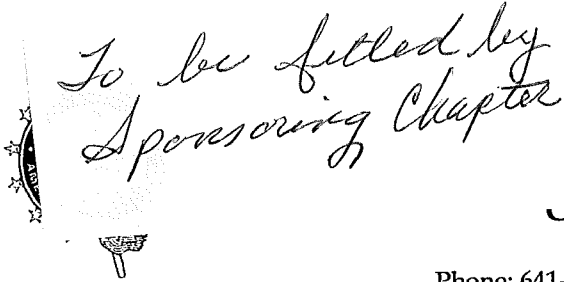 To be filled by
Sponsoring Chapter
AME
Phone: 641-